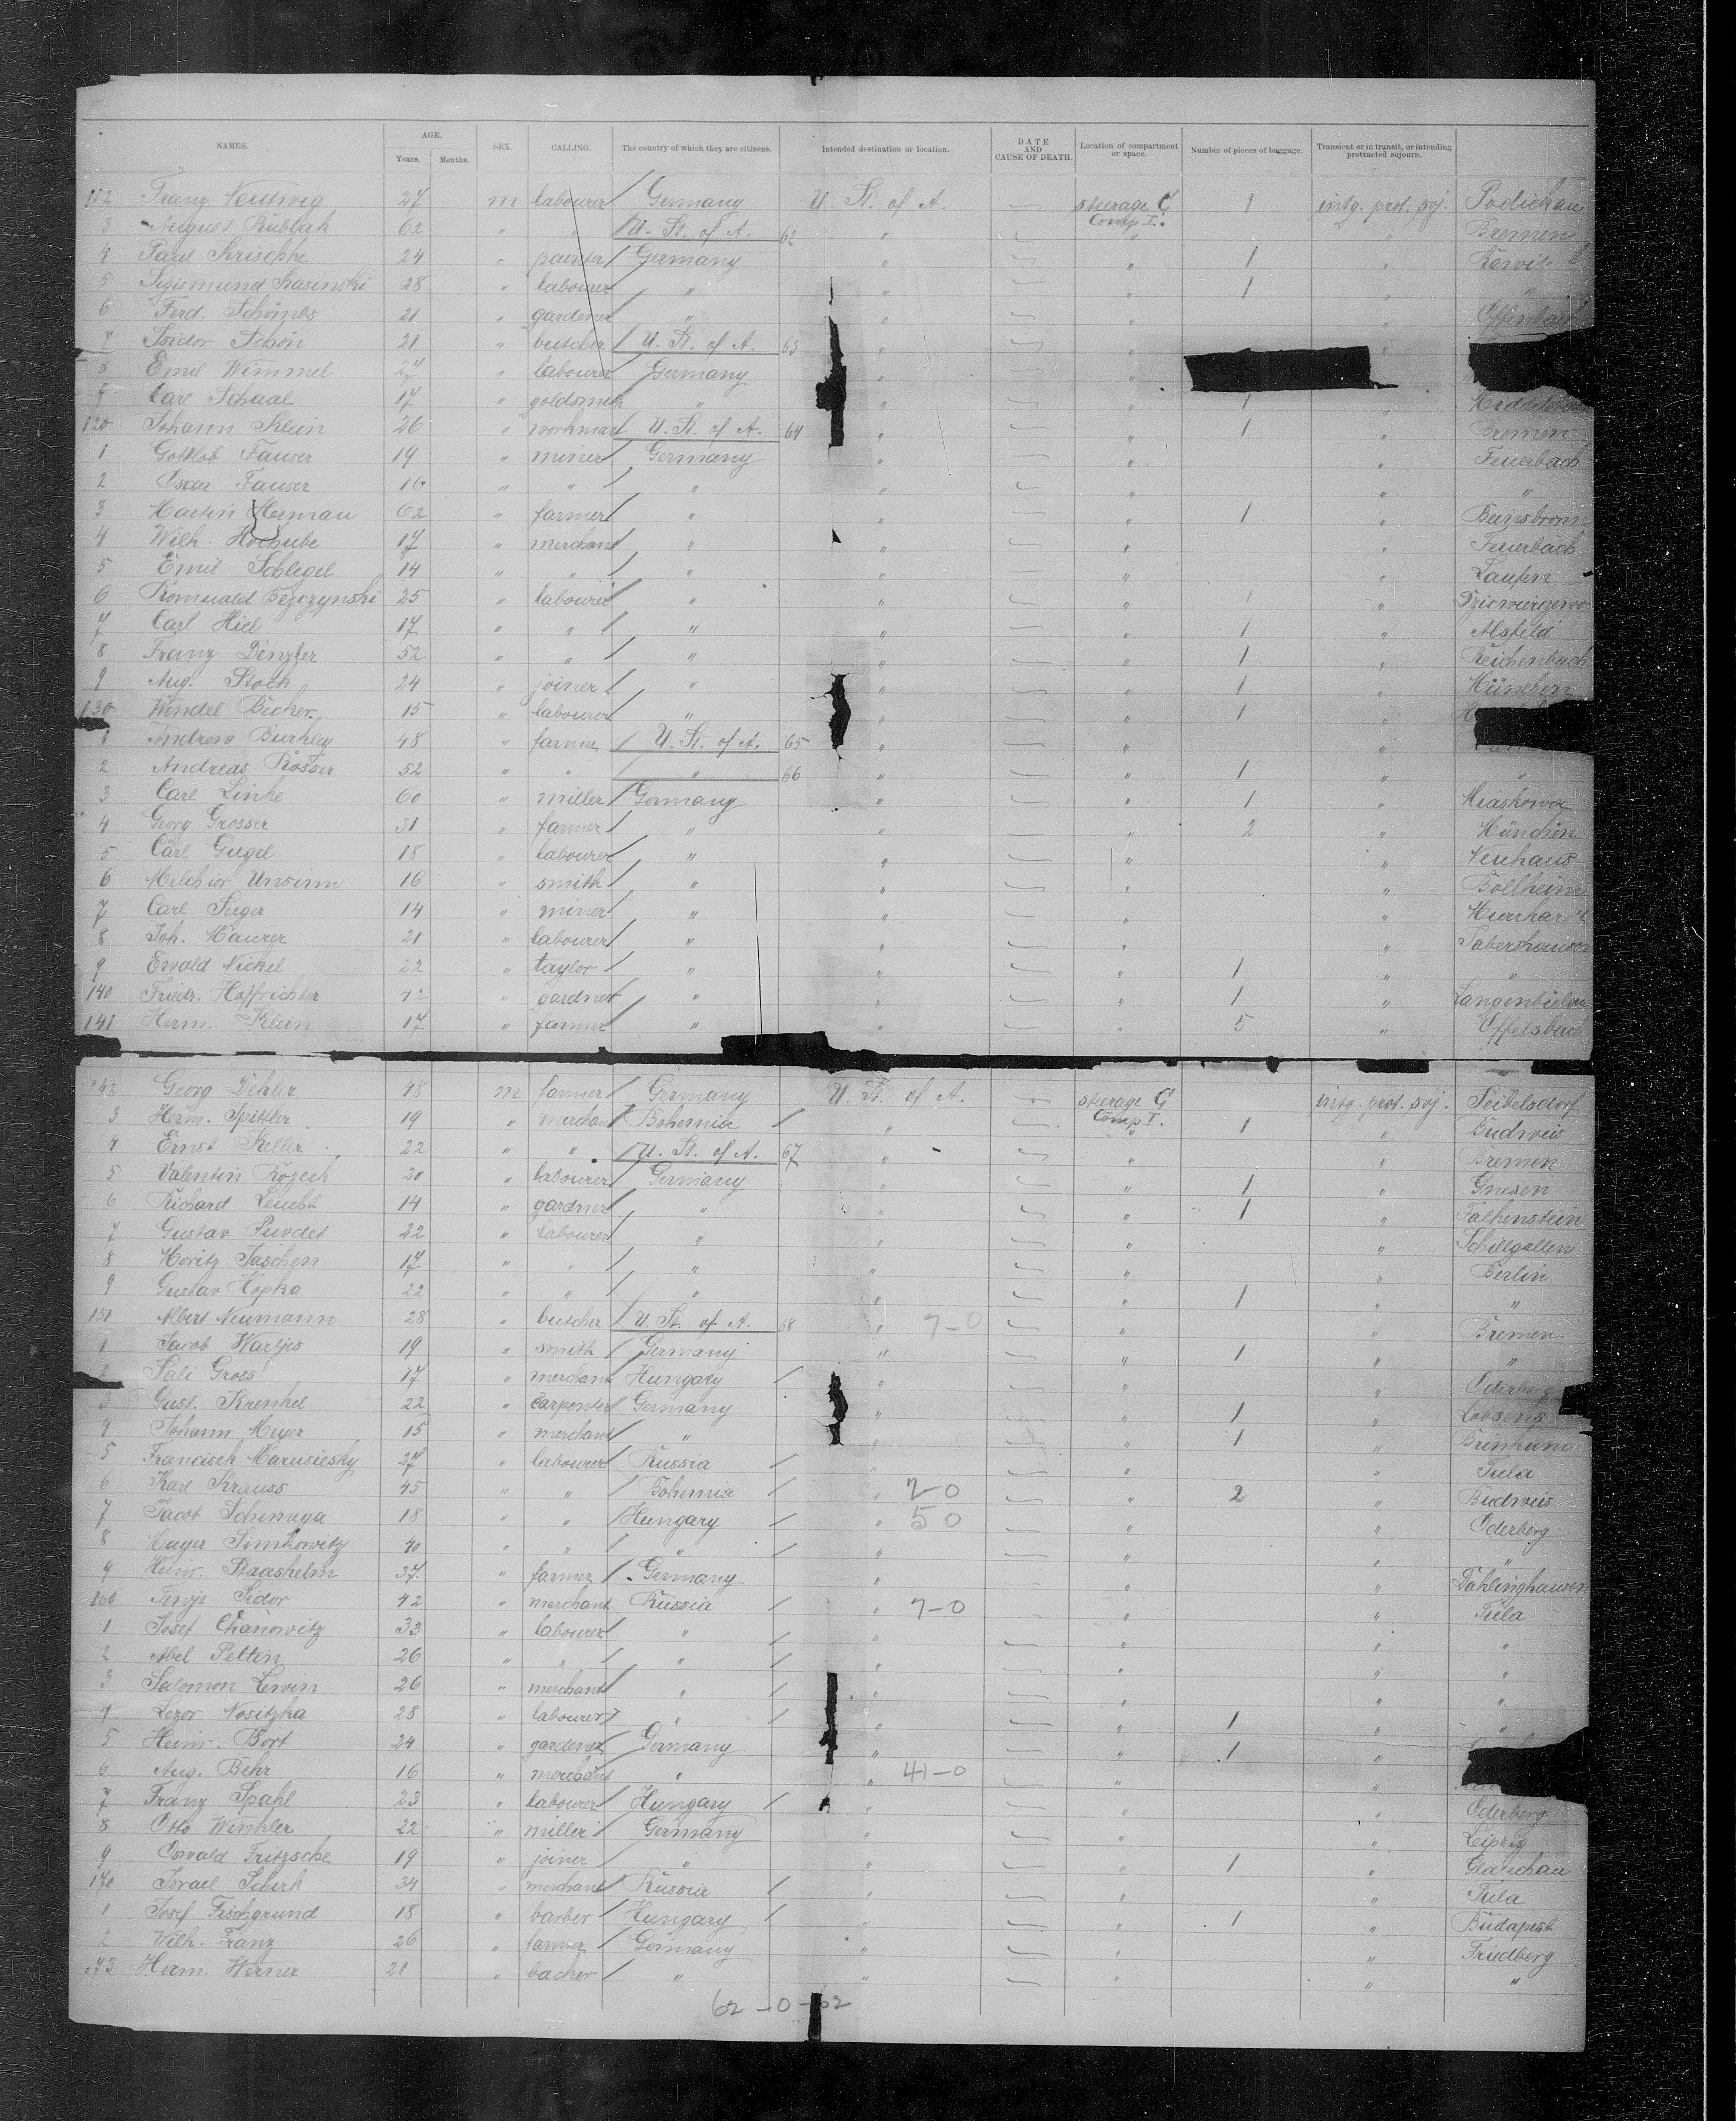 NAMES. AGE. Years. Months. SEX. CALLING. The country of which they are citizens. Intended destination or location. DATE AND CAUSE OF DEATH. Location of compartment or space. Number of pieces of baggage. Transient or in transit, or intending protracted sojourn.
112 Franz Neutwig 27 m labourer Germany U. St. of A. steerage Comp I. 1 intg. prot. soj. Podichau
3 August Kublak 62 " " U. St. of A. 62 " " " Bremen
4 Paul Krischke 24 " painter Germany " " 1 "
5 Sigismund Kasinski 28 " labourer " " " 1 " "
6 Ferd. 21 " gardener " " " " Offenbach
7 Isidor Schön 21 " butcher U. St. of A. 63 " " "
8 Emil Wimmel 27 " labourer Germany " "
9 Carl Schaal 17 " goldsmith " " " 1 "
120 Johann Klein 26 " workman U. St. of A. 64 " " 1 " Bremen
1 Gottlob Fauser 19 " miner Germany " " " Feuerbach
2 Oscar Fauser 16 " " " " " " "
3 Martin Herman 62 " farmer " " " 1 "
4 Wilh. 17 " merchant " " " " Feuerbach
5 Emil Schlegel 14 " " " " " " Laufen
6 Romuald 25 " labourer " " " 1 "
7 Carl Hill 17 " " " " " 1 " Alsfeld
8 Franz Denzler 52 " " " " " 1 " Reichenbach
9 Aug. Stock 24 " joiner " " " 1 " München
130 Wendel Becher 15 " labourer " " " 1 "
1 Andrew Burkley 48 " farmer U. St. of A. 65 " " "
2 Andreas Rosser 52 " " " 66 " " 1 " "
3 Carl Linke 60 " miller Germany " " 1 "
4 Georg Grosser 31 " farmer " " " 2 " München
5 Carl Gugel 18 " labourer " " " " Neuhaus
6 Melchior Unsinn 16 " smith " " " " Bollheim
7 Carl Seeger 14 " miner " " " "
8 Joh. Maurer 21 " labourer " " " "
9 Ewald Nickel 22 " taylor " " " 1 " "
140 Friedr. Hoffrichter 42 " gardner " " " 1 " Langenbielau
141 Herm. Klein 17 " farmer " " " 5 "
142 Georg Dehler 48 m farmer Germany U. St. of A. steerage Comp I. intg. prot. soj. Seibelsdorf
3 Herm. Spittler 19 " merchant Bohemia " " 1 " Budweis
4 Ernst Keller 22 " " U. St. of A. 67 " " " Bremen
5 Valentin 20 " labourer Germany " " 1 " Gnesen
6 Richard Leucht 14 " gardner " " " 1 " Falkenstein
7 Gustav 22 " labourer " " " " Schillgallen
8 Moritz Jaschen 17 " " " " " " Berlin
9 Gustav Hopka 22 " " " " " 1 " "
Albert Neumann 28 " butcher U. St. of A. 68 " 7-0 " " Bremen
1 Jacob Hartjes 19 " smith Germany " " 1 " "
Sali Gross 17 " merchant Hungary " " " Oderberg
3 Gust. Krenkel 22 " carpenter Germany " " 1 " Lobsens
4 Johann Meyer 15 " merchant " " " 1 " Brinkum
5 Francisek Marusiesky 27 " labourer Russia " " " Tula
6 Karl Krauss 45 " " Bohemia " 2-0 " 2 " Budweis
7 Jacob Schemega 18 " " Hungary " 5 0 " " Oderberg
8 Mayer Simkowitz 40 " " " " " " "
9 Heinr. Staashelm 37 " farmer Germany " " " Dahlinghausen
160 Sidor 42 " merchant Russia " 7-0 " " Tula
1 Josef Chanowitz 33 " labourer " " " " "
2 Abel Peltin 26 " " " " " " "
3 Salomon Lewin 26 " merchant " " " " "
4 Lezor Nositzka 28 " labourer " " " 1 " "
5 Heinr. Bort 24 " gardener Germany " " 1 "
6 Aug. Behr 16 " merchant " " 41-0 " "
7 Franz Spahl 23 " labourer Hungary " " " Oderberg
8 Otto Winkler 22 " miller Germany " " " Leipzig
9 Oswald Fritzsche 19 " joiner " " " 1 " Glauchau
170 Israel Scherk 34 " merchant Russia " " " Tula
1 Josef Fischgrund 18 " barber Hungary " " 1 " Budapest
2 Wilh. Franz 26 " farmer Germany " " " Friedberg
173 Herm. Werner 21 " backer " " " " "
62-0-62